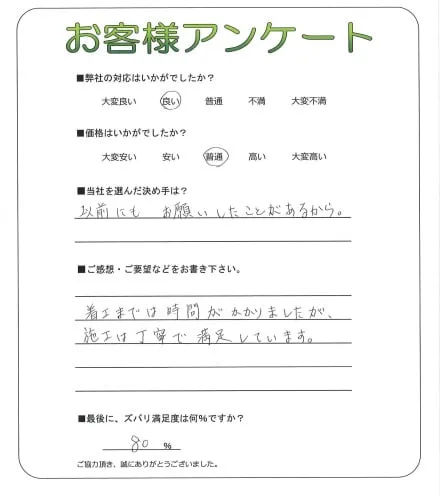 お客様アンケート
■弊社の対応はいかがでしたか？
大変良い 良い 普通 不満 大変不満
■価格はいかがでしたか？
大変安い 安い 普通 高い 大変高い
■当社を選んだ決め手は？
以前にも お願いしたことがあるから。
■ご感想・ご要望などをお書き下さい。
着工までは時間がかかりましたが、
施工は丁寧で満足しています。
■最後に、ズバリ満足度は何%ですか？
80 %
ご協力頂き、誠にありがとうございました。